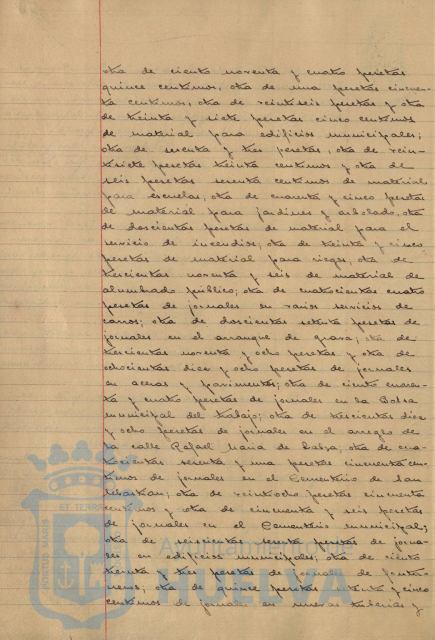 otra de ciento noventa y cuatro pesetas
quince centimos, otra de una pesetas cincuen-
ta centimos, otra de veintiseis pesetas y otra
de treinta y siete pesetas cinco centimos
de material para edificios municipales;
otra de sesenta y tres pesetas, otra de vein-
tisiete pesetas treinta centimos y otra de
seis pesetas sesenta centimos de material
para escuelas, otra de cuarenta y cinco pesetas
de material para jardines y arbolado, otra
de doscientas pesetas de material para el
servicio de incendios; otra de treinta y cinco
pesetas de material para riegos, otra de
trescientas noventa y seis de material de
alumbrado público; otra de cuatrocientas cuatro
pesetas de jornales en varios servicios de
carros; otra de doscientas setenta pesetas de
jornales en el arranque de grava; otra de
trescientas noventa y ocho pesetas y otra de
ochocientas diez y ocho pesetas de jornales
en aceras y pavimentos; otra de ciento cuaren-
ta y cuatro pesetas de jornales en la Bolsa
municipal del trabajo; otra de trescientas diez
y ocho pesetas de jornales en el arreglo de
la calle Rafael Maria de Labra; otra de cua-
trocientas y una pesetas cincuenta cen-
timos de jornales en el Cementerio de San
Sebastian; otra de veintiocho pesetas cincuenta
centimos y otra de cincuenta y seis pesetas
de jornales en el Cementerio municipal;
otra de seiscientas pesetas de jorna-
les en edificios municipales, otra de ciento
treinta y tres pesetas de jornales de fontane-
neros; otra de quince pesetas y cinco
centimos de jornales en nuevas tuberias y
Ayuntamiento de
HUELVA